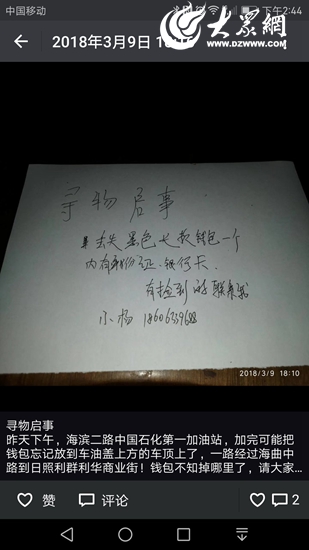 中国移动
下午2:44
2018年3月9日 18:10
大众網
WWW.DZWWW.COM
寻物启事
丢失黑色长款钱包一个
内有身份证、银行卡
有捡到的联系我
小杨
2018/3/9 18:10
寻物启事
昨天下午，海滨二路中国石化第一加油站，加完可能把
钱包忘记放到车油盖上方的车顶上了，一路经过海曲中
路到日照利群利华商业街！钱包不知掉哪里了，请大家...
赞
评论